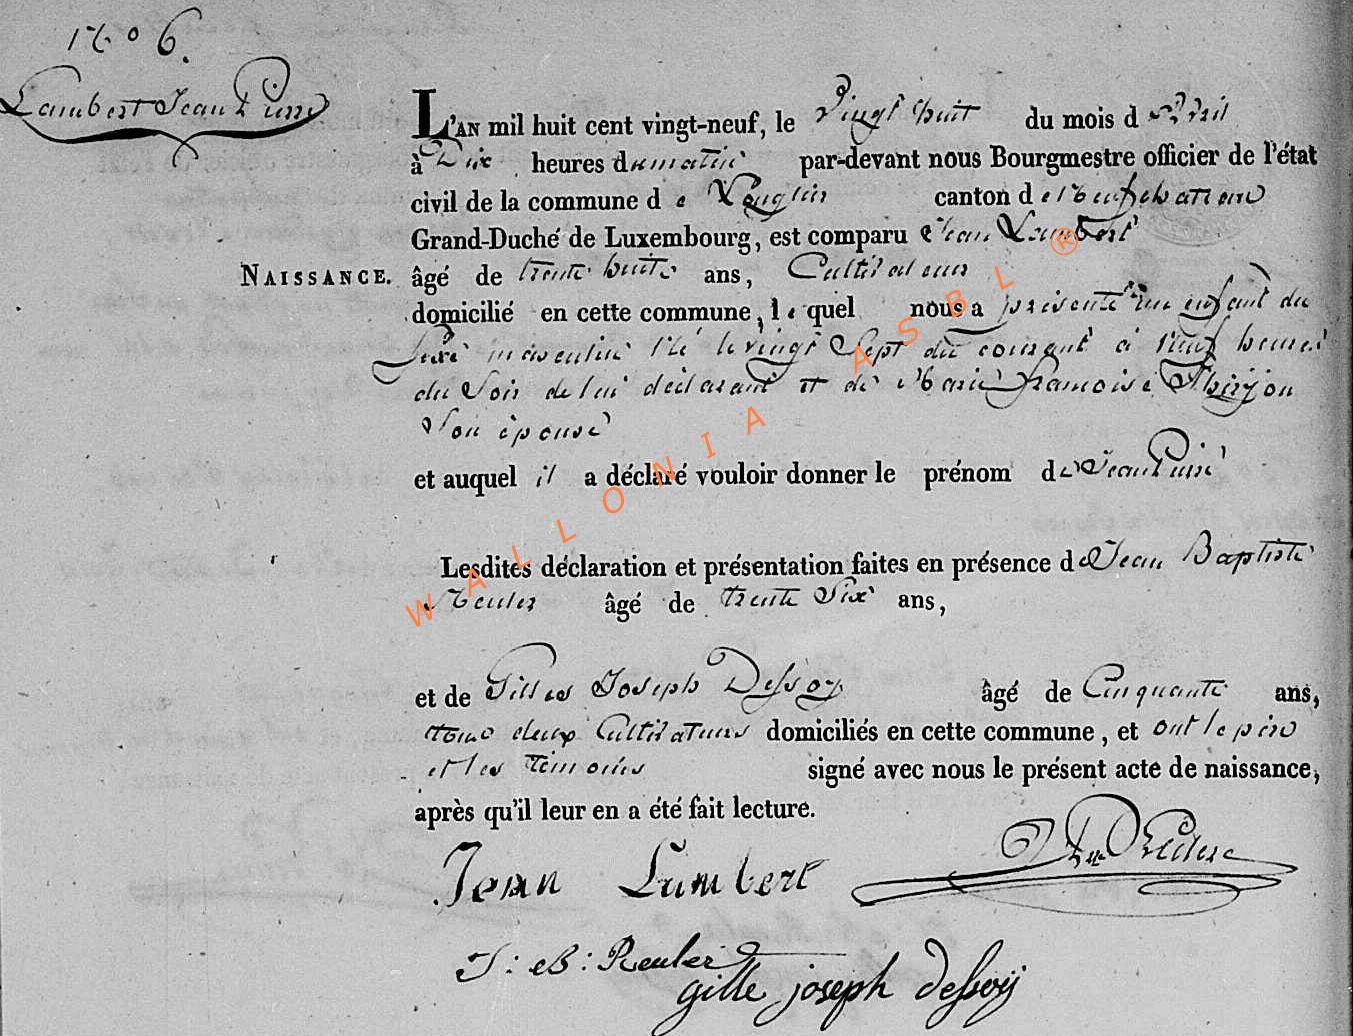 N° 6.
Lambert Jean Pierre
L'AN mil huit cent vingt-neuf, le Vingt huit du mois d'avril
à Dix heures du matin par-devant nous Bourgmestre officier de l'état
civil de la commune de Léuglier canton de Neufchateau
Grand-Duché de Luxembourg, est comparu Jean Lambert
NAISSANCE. âgé de trente huit ans, Cultivateur
domicilié en cette commune, le quel nous a présenté un enfant du
Sexe masculin Né le vingt Sept du courant à Neuf heures
du Soir de lui déclarant et de Marie françoise Thiryjon
Son épouse
et auquel il a déclaré vouloir donner le prénom de Jean Pierre
Lesdites déclaration et présentation faites en présence de Jean Baptiste
Reuler âgé de trente Six ans,
et de Gilles Joseph Dessoy âgé de Cinquante ans,
tous deux Cultivateurs domiciliés en cette commune, et ont le père
et les témoins signé avec nous le présent acte de naissance,
après qu'il leur en a été fait lecture.
Jean Lambert
J: B: Reuler
gille joseph dessoÿ
WALLONIA ASBL ®